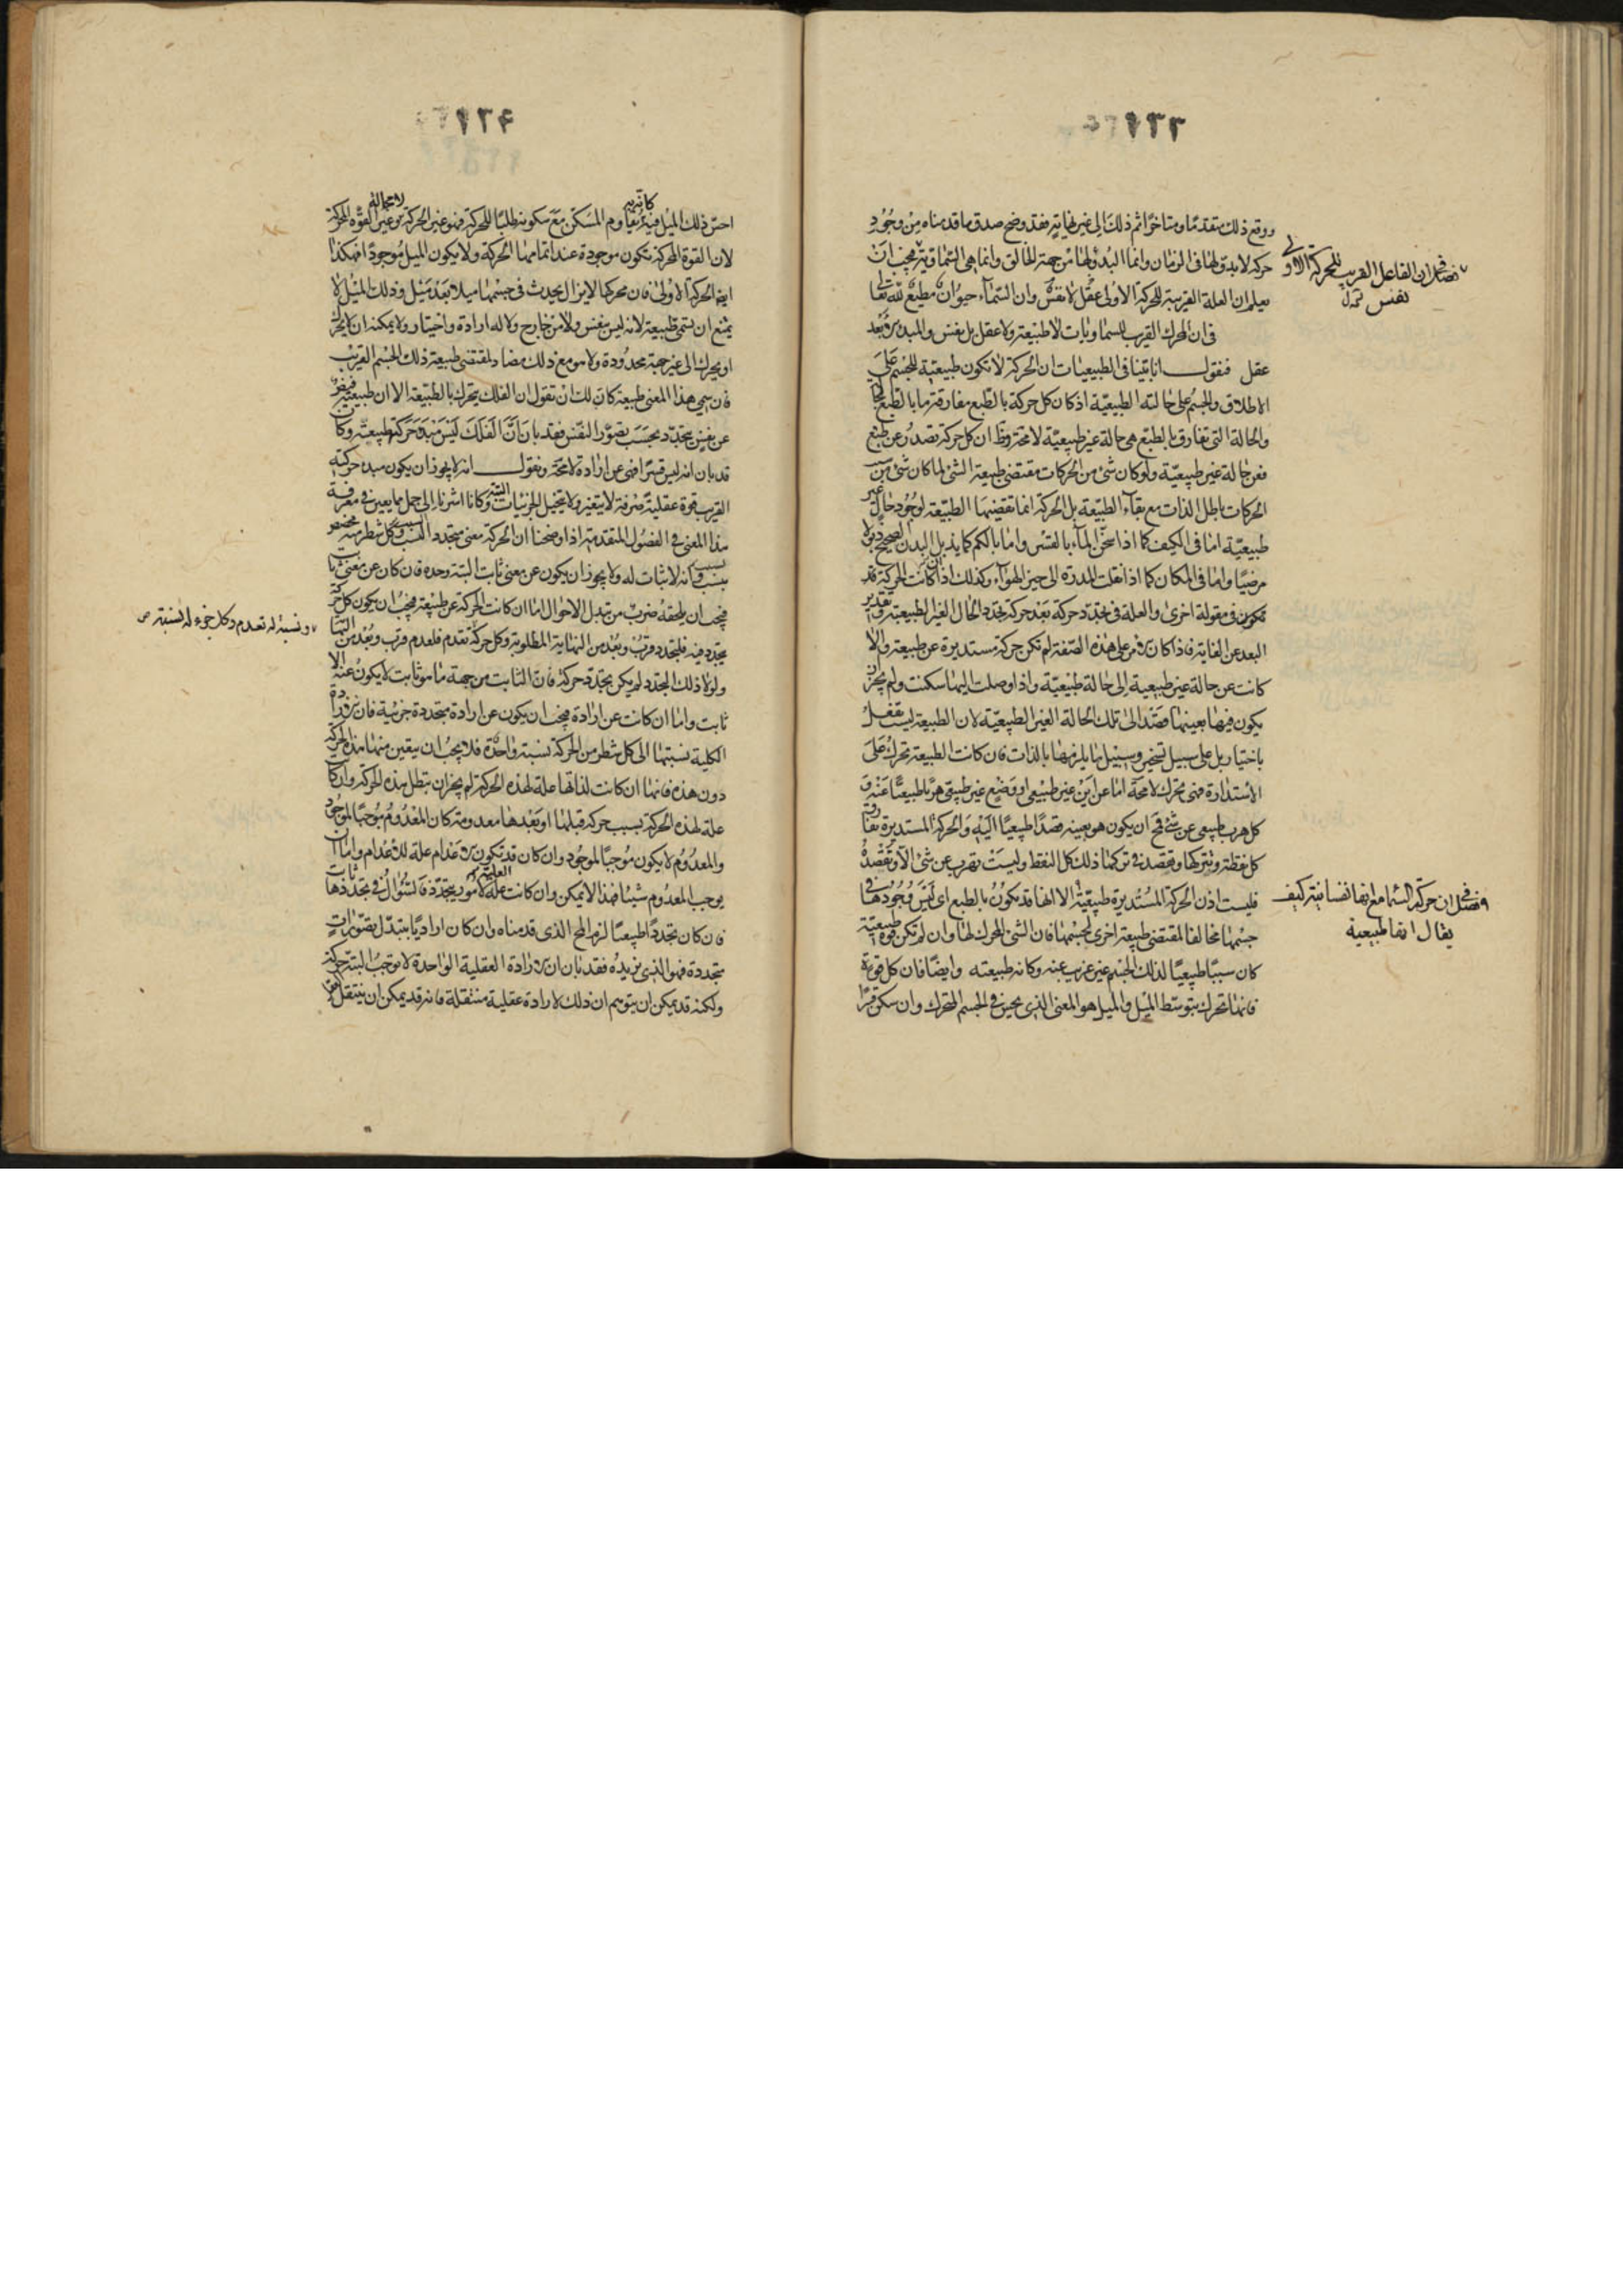 ١٣٦
ووقع ذلك متقدما ومتاخرا ثم ذلك الى غير نهاية فقد وضح صدق ما قدمناه من وجود
حركة لا بدو لها فى الزمان وانما البدؤ لها من جهة الخالق وانما هى السماوية فيجب ان
يعلم ان العلة القريبة للحركة الاولى عقل لا نفس وان السماء حيوان مطيع لله تعا
فى ان المحرك القريب للسماويات لا طبيعة ولا عقل بل نفس والمبدء الابعد
عقل فنقول انا بينا فى الطبيعيات ان الحركة لا تكون طبيعية للجسم على
الاطلاق والجسم على حالته الطبيعية اذ كان كل حركة بالطبع مفارقة ما بالطبع لحا
والحالة التى تفارق بالطبع هى حالة غير طبيعية لا محة وظ ان كل حركة تصدر عن طبع
فعن حالة غير طبيعية ولو كان شئ من الحركات مقتضى طبيعة الشئ لما كان شئ من نسب
الحركات باطل الذات مع بقاء الطبيعة بل الحركة انما تقتضيها الطبيعة لوجود حال غير
طبيعية اما فى الكيف كما اذا سخن الماء بالقسر واما بالكم كما يذبل البدن الصحيح ذبولا
مرضيا واما فى المكان كما اذا نقلت المدرة الى حيز الهواء وكذلك اذا كانت الحركة قد
تكون فى مقولة اخرى والعلة فى تجدد حركة بعد حركة تجدد الحال الغير الطبيعية وتقدير
البعد عن الغاية فاذا كان الامر على هذه الصفة لم تكن حركة مستديرة عن طبيعة والا
كانت عن حالة غير طبيعية الى حالة طبيعية واذا وصلت اليها سكنت ولم يجز ان
يكون فيها بعينها قصد الى تلك الحالة الغير الطبيعية لان الطبيعة ليست تفعل
باختيار بل على سبيل تسخير وسبيل ما يلزمها بالذات فان كانت الطبيعة تحرك على
الاستدارة فهى تحرك لا محة اما عن اين غير طبيعى او وضع غير طبيعى هربا طبيعيا عنه و
كل هرب طبيعى عن شئ فمح ان يكون هو بعينه قصدا طبيعيا اليه والحركة المستديرة تفارق
كل نقطة وتتركها وتقصد فى تركها ذلك كل النقط وليست تهرب عن شئ الا وتقصده
فليست اذن الحركة المستديرة طبيعية الا انها قد تكون بالطبع اى ليس وجودها فى
جسمها مخالفا لمقتضى طبيعة اخرى لجسمها فان الشئ المحرك لها وان لم تكن قوة طبيعية
كان سببا طبيعيا لذلك الجسم غير غريب عنه وكانه طبيعته وايضا فان كل قوة
فانما تحرك بتوسط الميل والميل هو المعنى الذى يحس فى الجسم المتحرك وان سكن قسرا
فصل فى ان الفاعل القريب للحركة الاولى
نفس
فصل فى ان حركة السماء مع انها نفسانية كيف
يقال انها طبيعية
١٣٩
كانه به
لا محالة
احس ذلك الميل فيه يقاوم المسكن مع سكونه طلبا للحركة فهو غير الحركة وغير القوة المحركة
لان القوة المحركة تكون موجودة عند اتمامها الحركة ولا يكون الميل موجودا فهكذا
ايضا الحركة الاولى فان محركها لا يزال يحدث فى جسمها ميلا بعد ميل وذلك الميل لا
يمتنع ان يسمى طبيعة لانه ليس بنفس ولا من خارج ولا له ارادة واختيار ولا يمكنه ان لا يحرك
او يحرك الى غير جهة محدودة ولا هو مع ذلك مضاد لمقتضى طبيعة ذلك الجسم القريب
فان سمى هذا المعنى طبيعة كان لك ان تقول ان الفلك يتحرك بالطبيعة الا ان طبيعته فيض
عن نفس يتجدد بحسب تصور النفس فقد بان ان الفلك ليس مبدء حركته طبيعة وكان
قد بان انه ليس قسرا فهى عن ارادة لا محة ونقول انه لا يجوز ان يكون مبدء حركته
القريب قوة عقلية صرفة لا يتغير ولا يتخيل الجزئيات البتة وكانا اشرنا الى جمل مما يعين فى معرفة
هذا المعنى فى الفصول المتقدمة اذ اوضحنا ان الحركة معنى متجدد النسب وكل شطر منه مخصص
بنسب فانه لا ثبات له ولا يجوز ان يكون عن معنى ثابت البتة وحده فان كان عن معنى ثابت
فيجب ان يلحقه ضرب من تبدل الاحوال اما ان كانت الحركة عن طبيعة فيجب ان يكون كل حركة
يتجدد فيه فلتجدد قرب وبعد من النهاية المطلوبة وكل حركة تعدم فلعدم قرب وبعد من النهاية
ولولا ذلك التجدد لم يكن تجدد حركة فان الثابت من جهة ما هو ثابت لا يكون عنه الا
ثابت واما ان كانت عن ارادة فيجب ان يكون عن ارادة متجددة جزئية فان الارادة
الكلية نسبتها الى كل شطر من الحركة نسبة واحدة فلا يجب ان يتعين منها هذه الحركة
دون هذه فانها ان كانت لذاتها علة لهذه الحركة لم يجز ان تبطل هذه الحركة وان كا
علة لهذه الحركة بسبب حركة قبلها او بعدها معدومة كان المعدوم موجبا لموجود
والمعدوم لا يكون موجبا لموجود وان كان قد تكون الاعدام علة للاعدام واما ان
يوجب المعدوم شيئا فهذا لا يمكن وان كانت علة لامور يتجدد فالسؤال فى تجددها ثابت
فان كان تجددا طبيعيا لزم المح الذى قدمناه وان كان اراديا يتبدل بتصورات
متجددة فهو الذى نريده فقد بان ان الارادة العقلية الواحدة لا توجب البتة حركة
ولكنه قد يمكن ان يتوهم ان ذلك لارادة عقلية منتقلة فانه قد يمكن ان ينتقل العقل
ونسبة له تعدم وكل جزء له نسبة